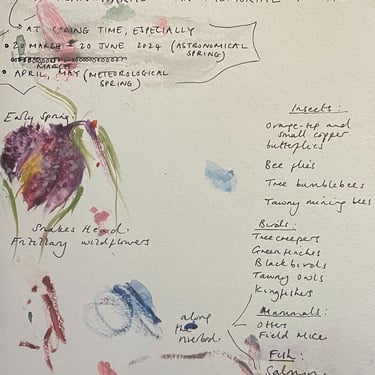 AT S*RING TIME, ESPECIALLY
• 20 MARCH - 20 JUNE 2024 (ASTRONOMICAL
SPRING)
MARCH
• APRIL, MAY (METEOROLOGICAL
SPRING)
Early Spring.
Snakes Head
Fritillary wildflowers
Insects:
Orange-tip and
small copper
butterflies
Bee flies
Tree bumblebees
Tawny mining bees
Birds:
Treecreepers
Greenfinches
Blackbirds
Tawny Owls
Kingfishers
along
the
riverbed.
Mammals:
Otters
Field Mice
Fish:
Salmon